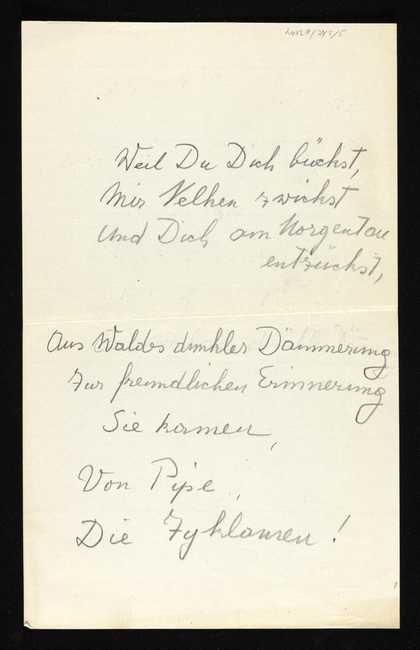 Weil Du Dich bückst,
Mir Nelken zwickst
Und Dich am Morgentau
entzückst,
Aus Waldes dunkler Dämmerung
Zur freundlichen Erinnerung
Sie kamen,
Von Pipe,
Die Zyklamen!